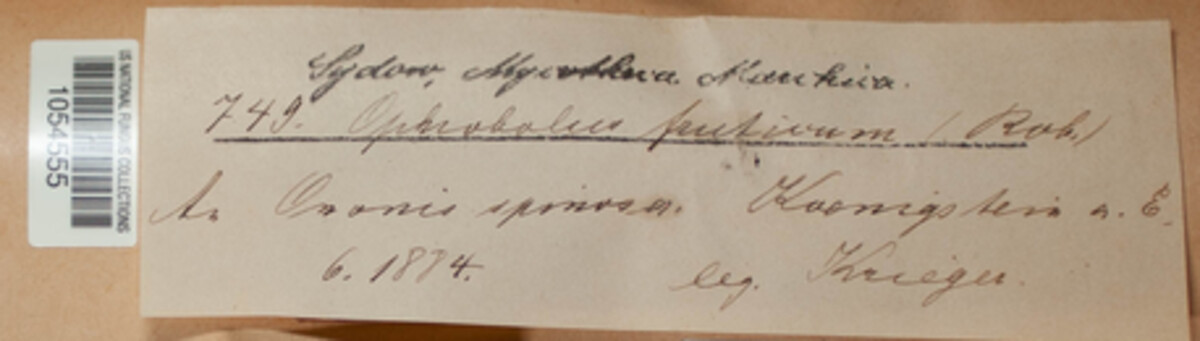 US NATIONAL FUNGUS COLLECTIONS
1054555
Sydow, Mycotheca Marchica.
749. Ophiobolus fruticum (Rob.)
An Ononis spinosa. Koenigstein a. E.
6. 1884. leg. Krieger.